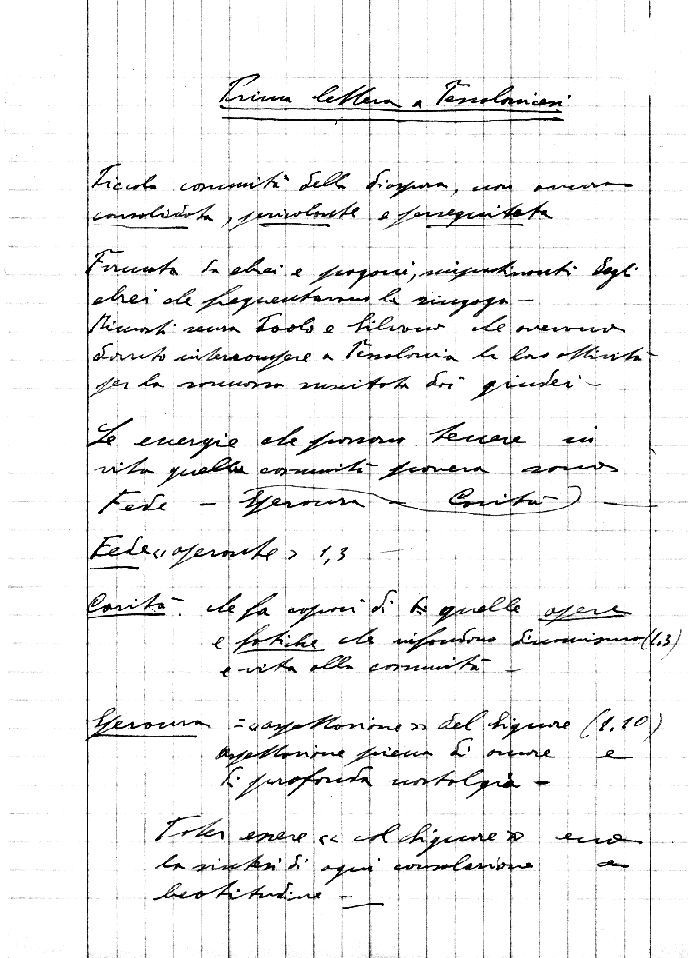 Prima lettera a Tessalonicesi
Piccola comunità della diaspora, non ancora
consolidata, pericolante e perseguitata
Formata da ebrei e pagani, simpatizzanti degli
ebrei che frequentavano la sinagoga –
Rimasti senza Paolo e Silvano che avevano
dovuto interrompere a Tessalonica la loro attività
per la sommossa suscitata dai giudei –
Le energie che possono tenere in
vita quella comunità povera sono
Fede – Speranza – Carità –
Fede «operante» 1,3 –
Carità. che fa capaci di quelle opere
e fatiche che infondono dinamismo (1,3)
e vita alla comunità –
Speranza = «aspettazione» del Signore (1,10)
aspettazione piena di amore e
di profonda nostalgia –
Poter essere «col Signore» era
la sintesi di ogni consolazione e
beatitudine –